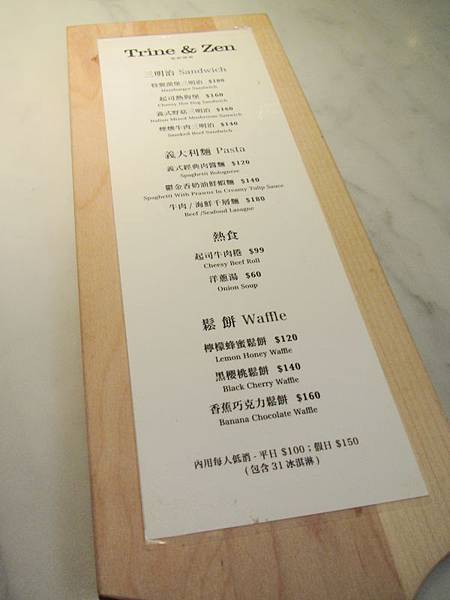 Trine & Zen
三明治 Sandwich
特製漢堡三明治 $180
Hamburger Sandwich
起司熱狗堡 $160
Cheesy Hot Dog Sandwich
義式野菇三明治 $160
Italian Mixed Mushroom Sanwich
煙燻牛肉三明治 $140
Smoked Beef Sandwich
義大利麵 Pasta
義式經典肉醬麵 $120
Spaghetti Bolognese
鬱金香奶油鮮蝦麵 $140
Spaghetti With Prawns In Creamy Tulip Sauce
牛肉 / 海鮮千層麵 $180
Beef /Seafood Lasagne
熱食
起司牛肉捲 $99
Cheesy Beef Roll
洋蔥湯 $60
Onion Soup
鬆餅 Waffle
檸檬蜂蜜鬆餅 $120
Lemon Honey Waffle
黑櫻桃鬆餅 $140
Black Cherry Waffle
香蕉巧克力鬆餅 $160
Banana Chocolate Waffle
內用每人低消 - 平日 $100；假日 $150
( 包含 31 冰淇淋 )